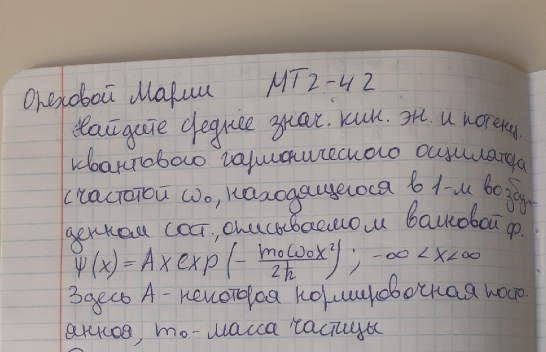 Ореховой Марии МТ2-42
Найдите среднее знач. кин. эн. и потенц.
квантового гармонического осцилатора
с частотой ω₀, находящегося в 1-м возбуж-
денном сост., описываемом волновой ф.
Ψ(x) = A x exp (- m₀ω₀x²/2ħ); -∞ < x < ∞
Здесь А - некоторая нормировочная посто-
янная, m₀ - масса частицы